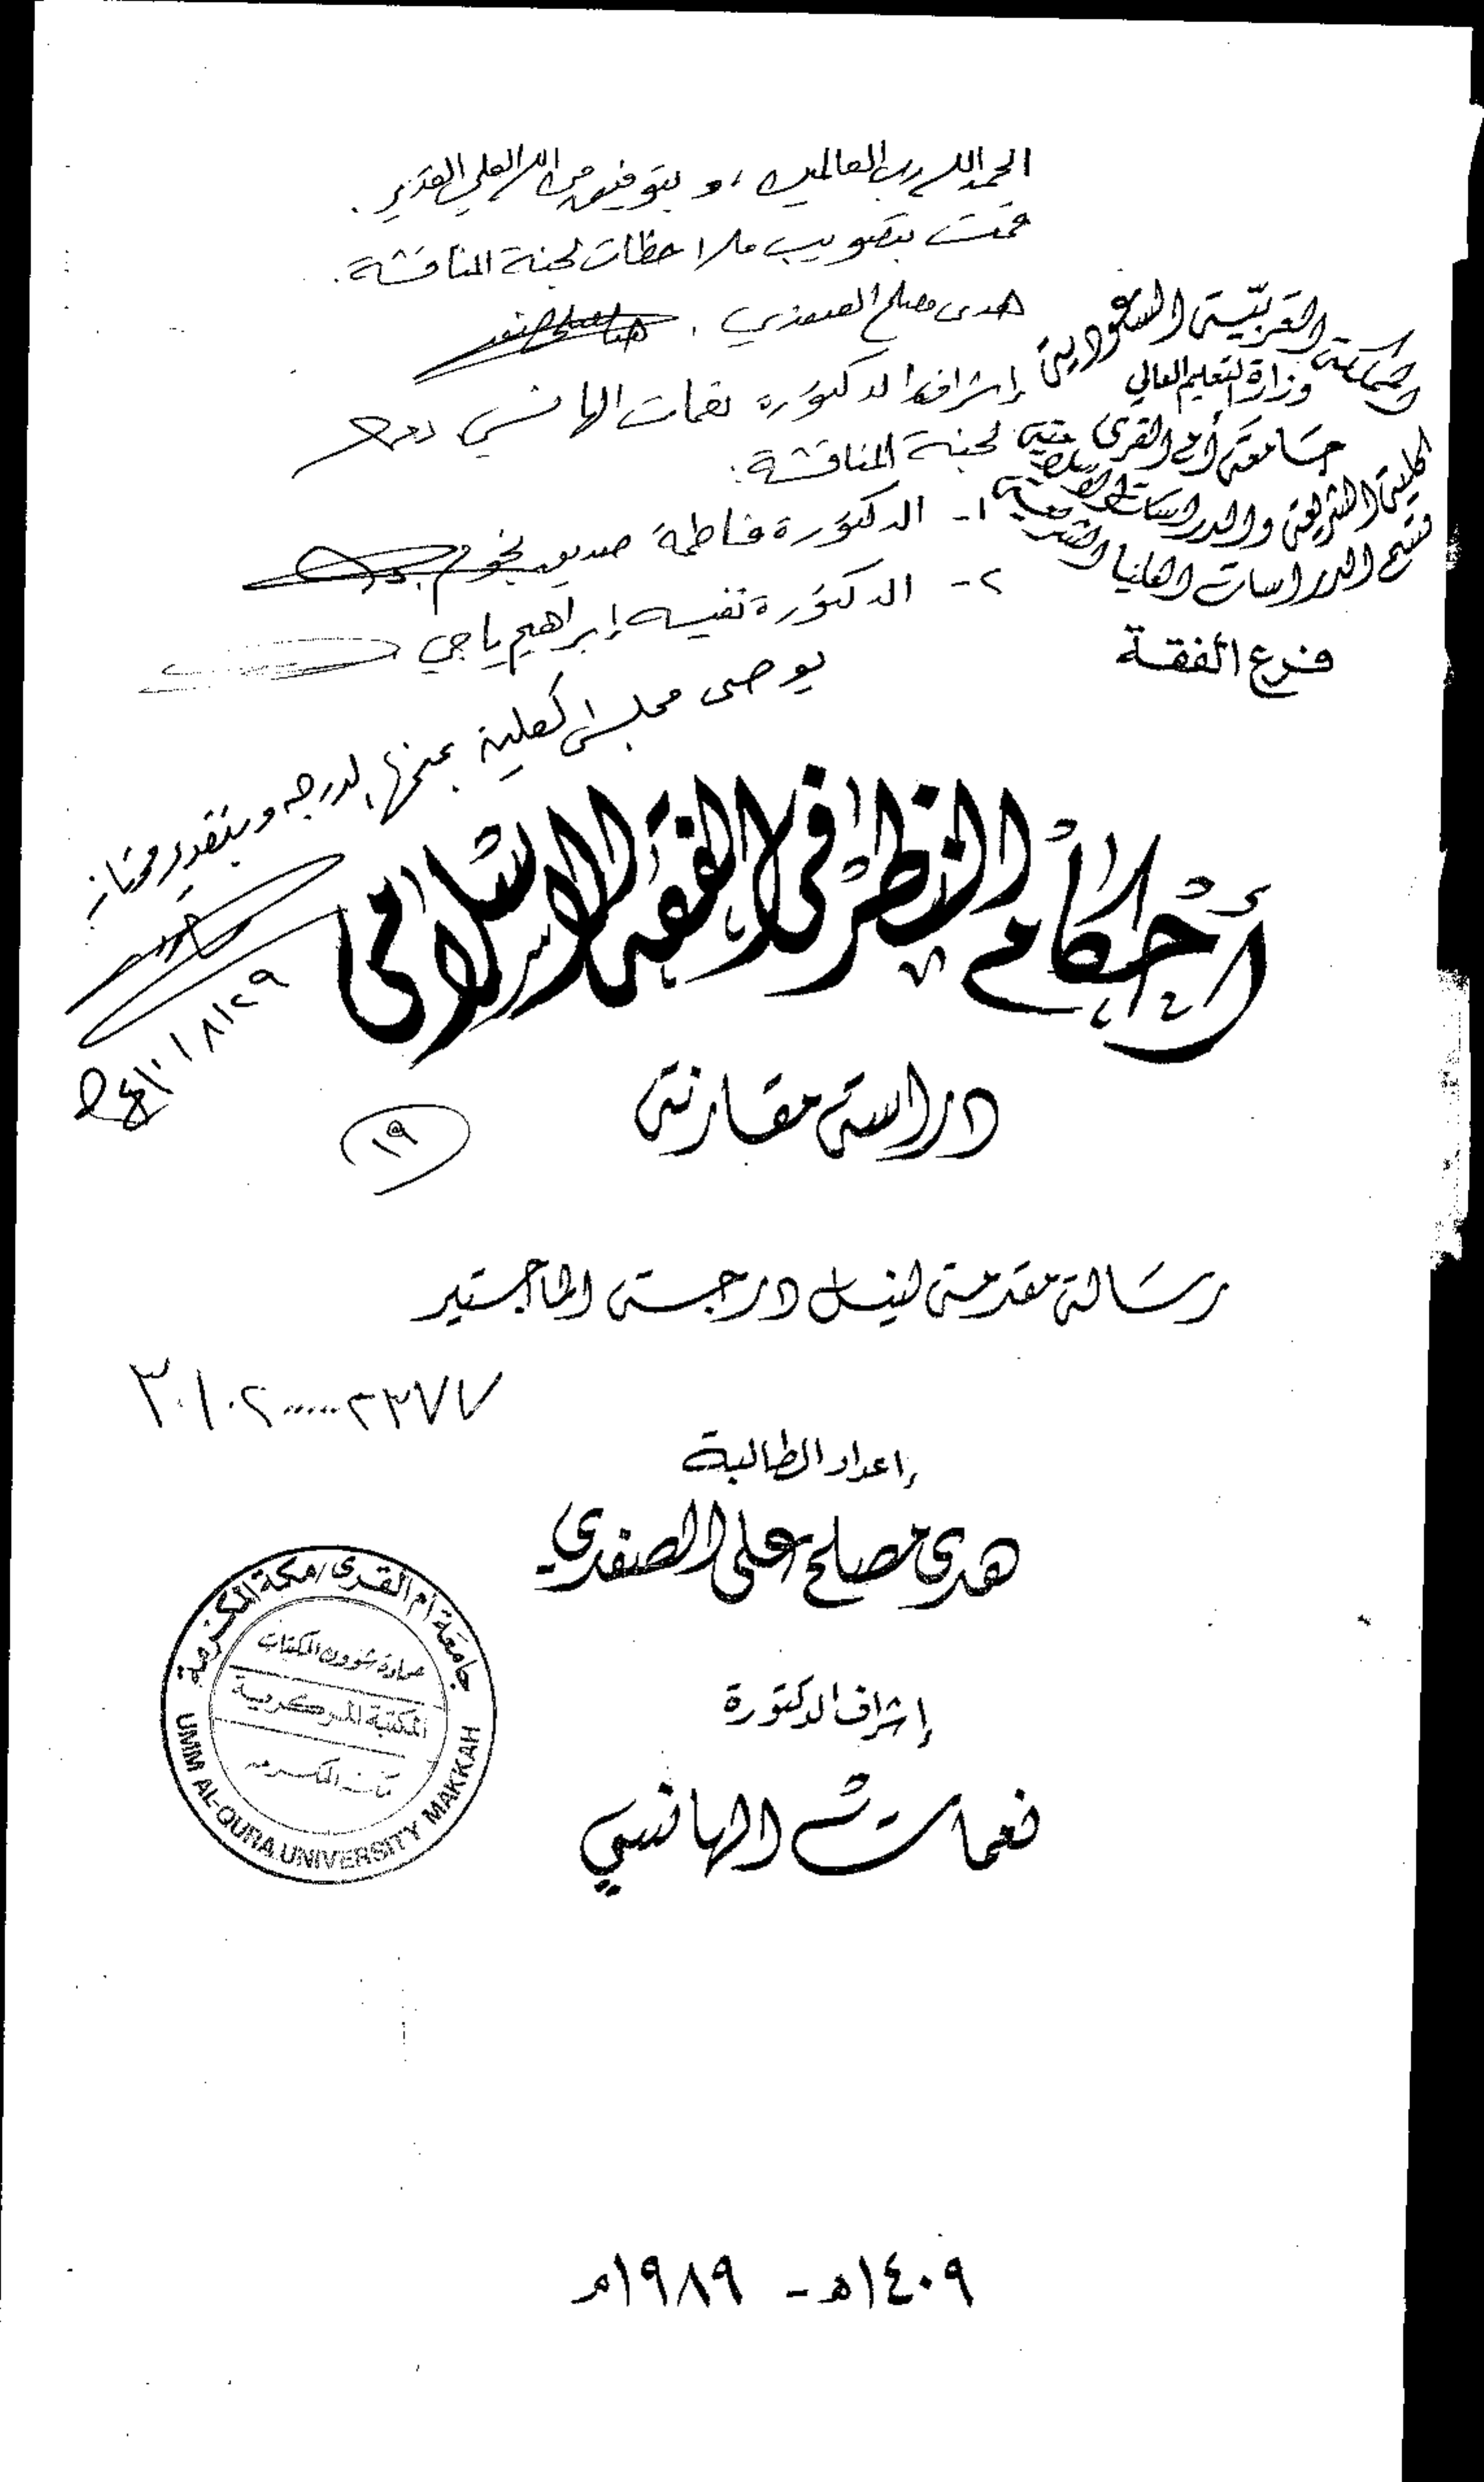 الحمد لله رب العالمين ، و بتوفيق من الله العلي القدير .
قمت بتصويب ملاحظات لجنة المناقشة .
هدى مصلح الصفدي .
إشراف الدكتورة نعمات الهانسي
لجنة المناقشة :
١- الدكتورة فاطمة صديق نجوم
٢- الدكتورة نفيسه إبراهيم ياجي
يوصى مجلس الكلية بمنحها الدرجه وبتقدير ممتاز
٢٩/٨/١٤١٠هـ
المملكة العربية السعودية
وزارة التعليم العالي
جامعة أم القرى
كلية الشريعة والدراسات الإسلامية
قسم الدراسات العليا الشرعية
فرع الفقة
أحكام النظر في الفقه الإسلامي
دراسة مقارنة
١٩
رسالة مقدمة لنيل درجة الماجستير
٣٠١٠٢٠٠٠٠٠٢٣٧٧
إعداد الطالبة
هدى مصلح علي الصفدي
إشراف الدكتورة
نعمات الهانسي
جامعة أم القرى / مكة المكرمة
عمادة شؤون المكتبات
المكتبة المركزية
مكة المكرمه
UMM AL-QURA UNIVERSITY MAKKAH
١٤٠٩هـ - ١٩٨٩م